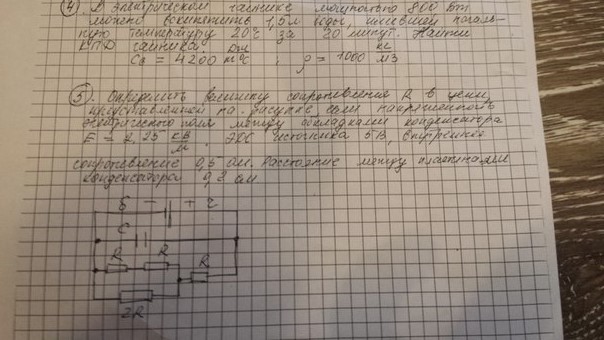 4. В электрическом чайнике мощностью 800 Вт
можно вскипятить 1,5 л воды, имеющей началь-
ную температуру 20°С за 20 минут. Найти
КПД чайника.
Cв = 4200 Дж/кг°С ; ρ = 1000 кг/м3
5. Определить величину сопротивления R в цепи,
представленной на рисунке если напряженность
электрического поля между обкладками конденсатора
E = 2,25 кВ/м. ЭДС источника 5В, внутреннее
сопротивление 0,5 Ом. Расстояние между пластинами
конденсатора 0,2 см.
ε - + r
C
R R R
2R